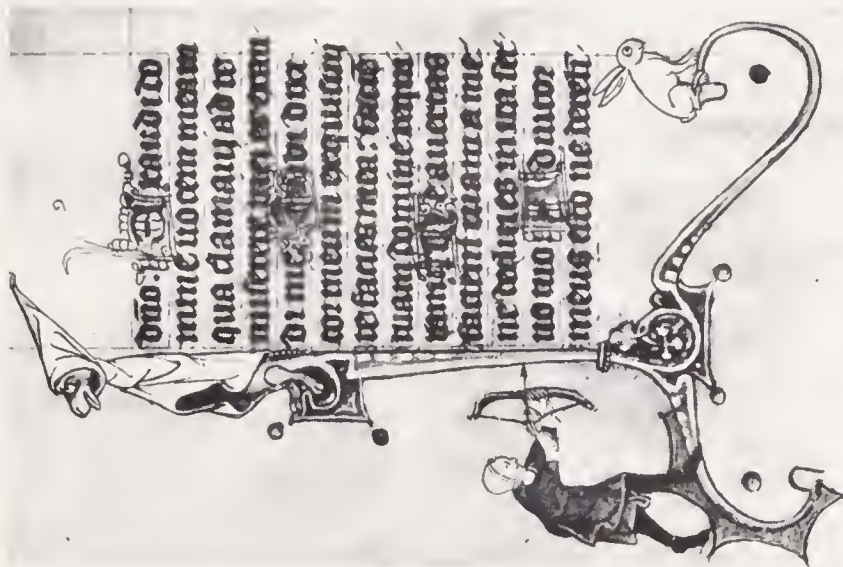 dño: Exaudi do
mine uocem meam
qua clamaui ad te
miserere mei et exau
di me bi dix
cor meum exquisiuit
te facies mea: faciē
tuam domine requi
ram Ne auertas
faciem tuam a me
ne declines in ira ser
uo tuo Adiutor
meus esto ne dereli